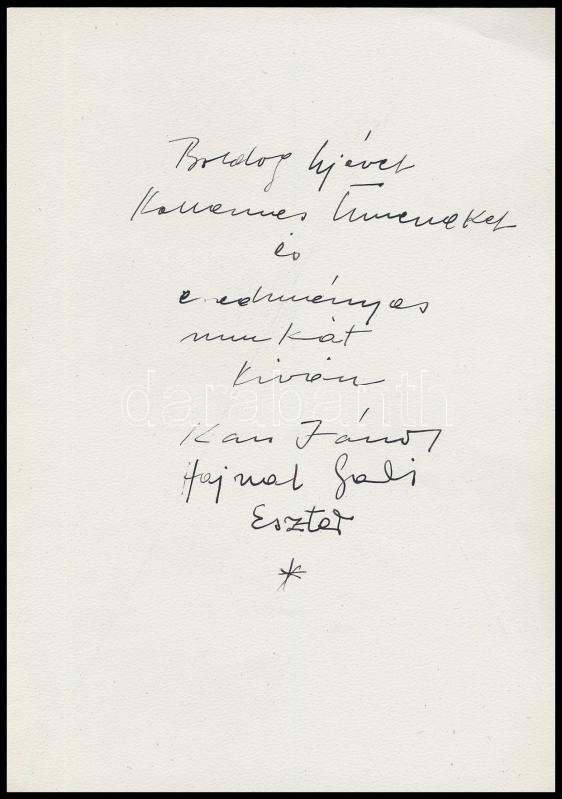 Boldog Újévet
Kellemes Ünnepeket
és
eredményes
munkát
kíván
Kass János
Hajnal Gabi
Eszter
*
darabanth